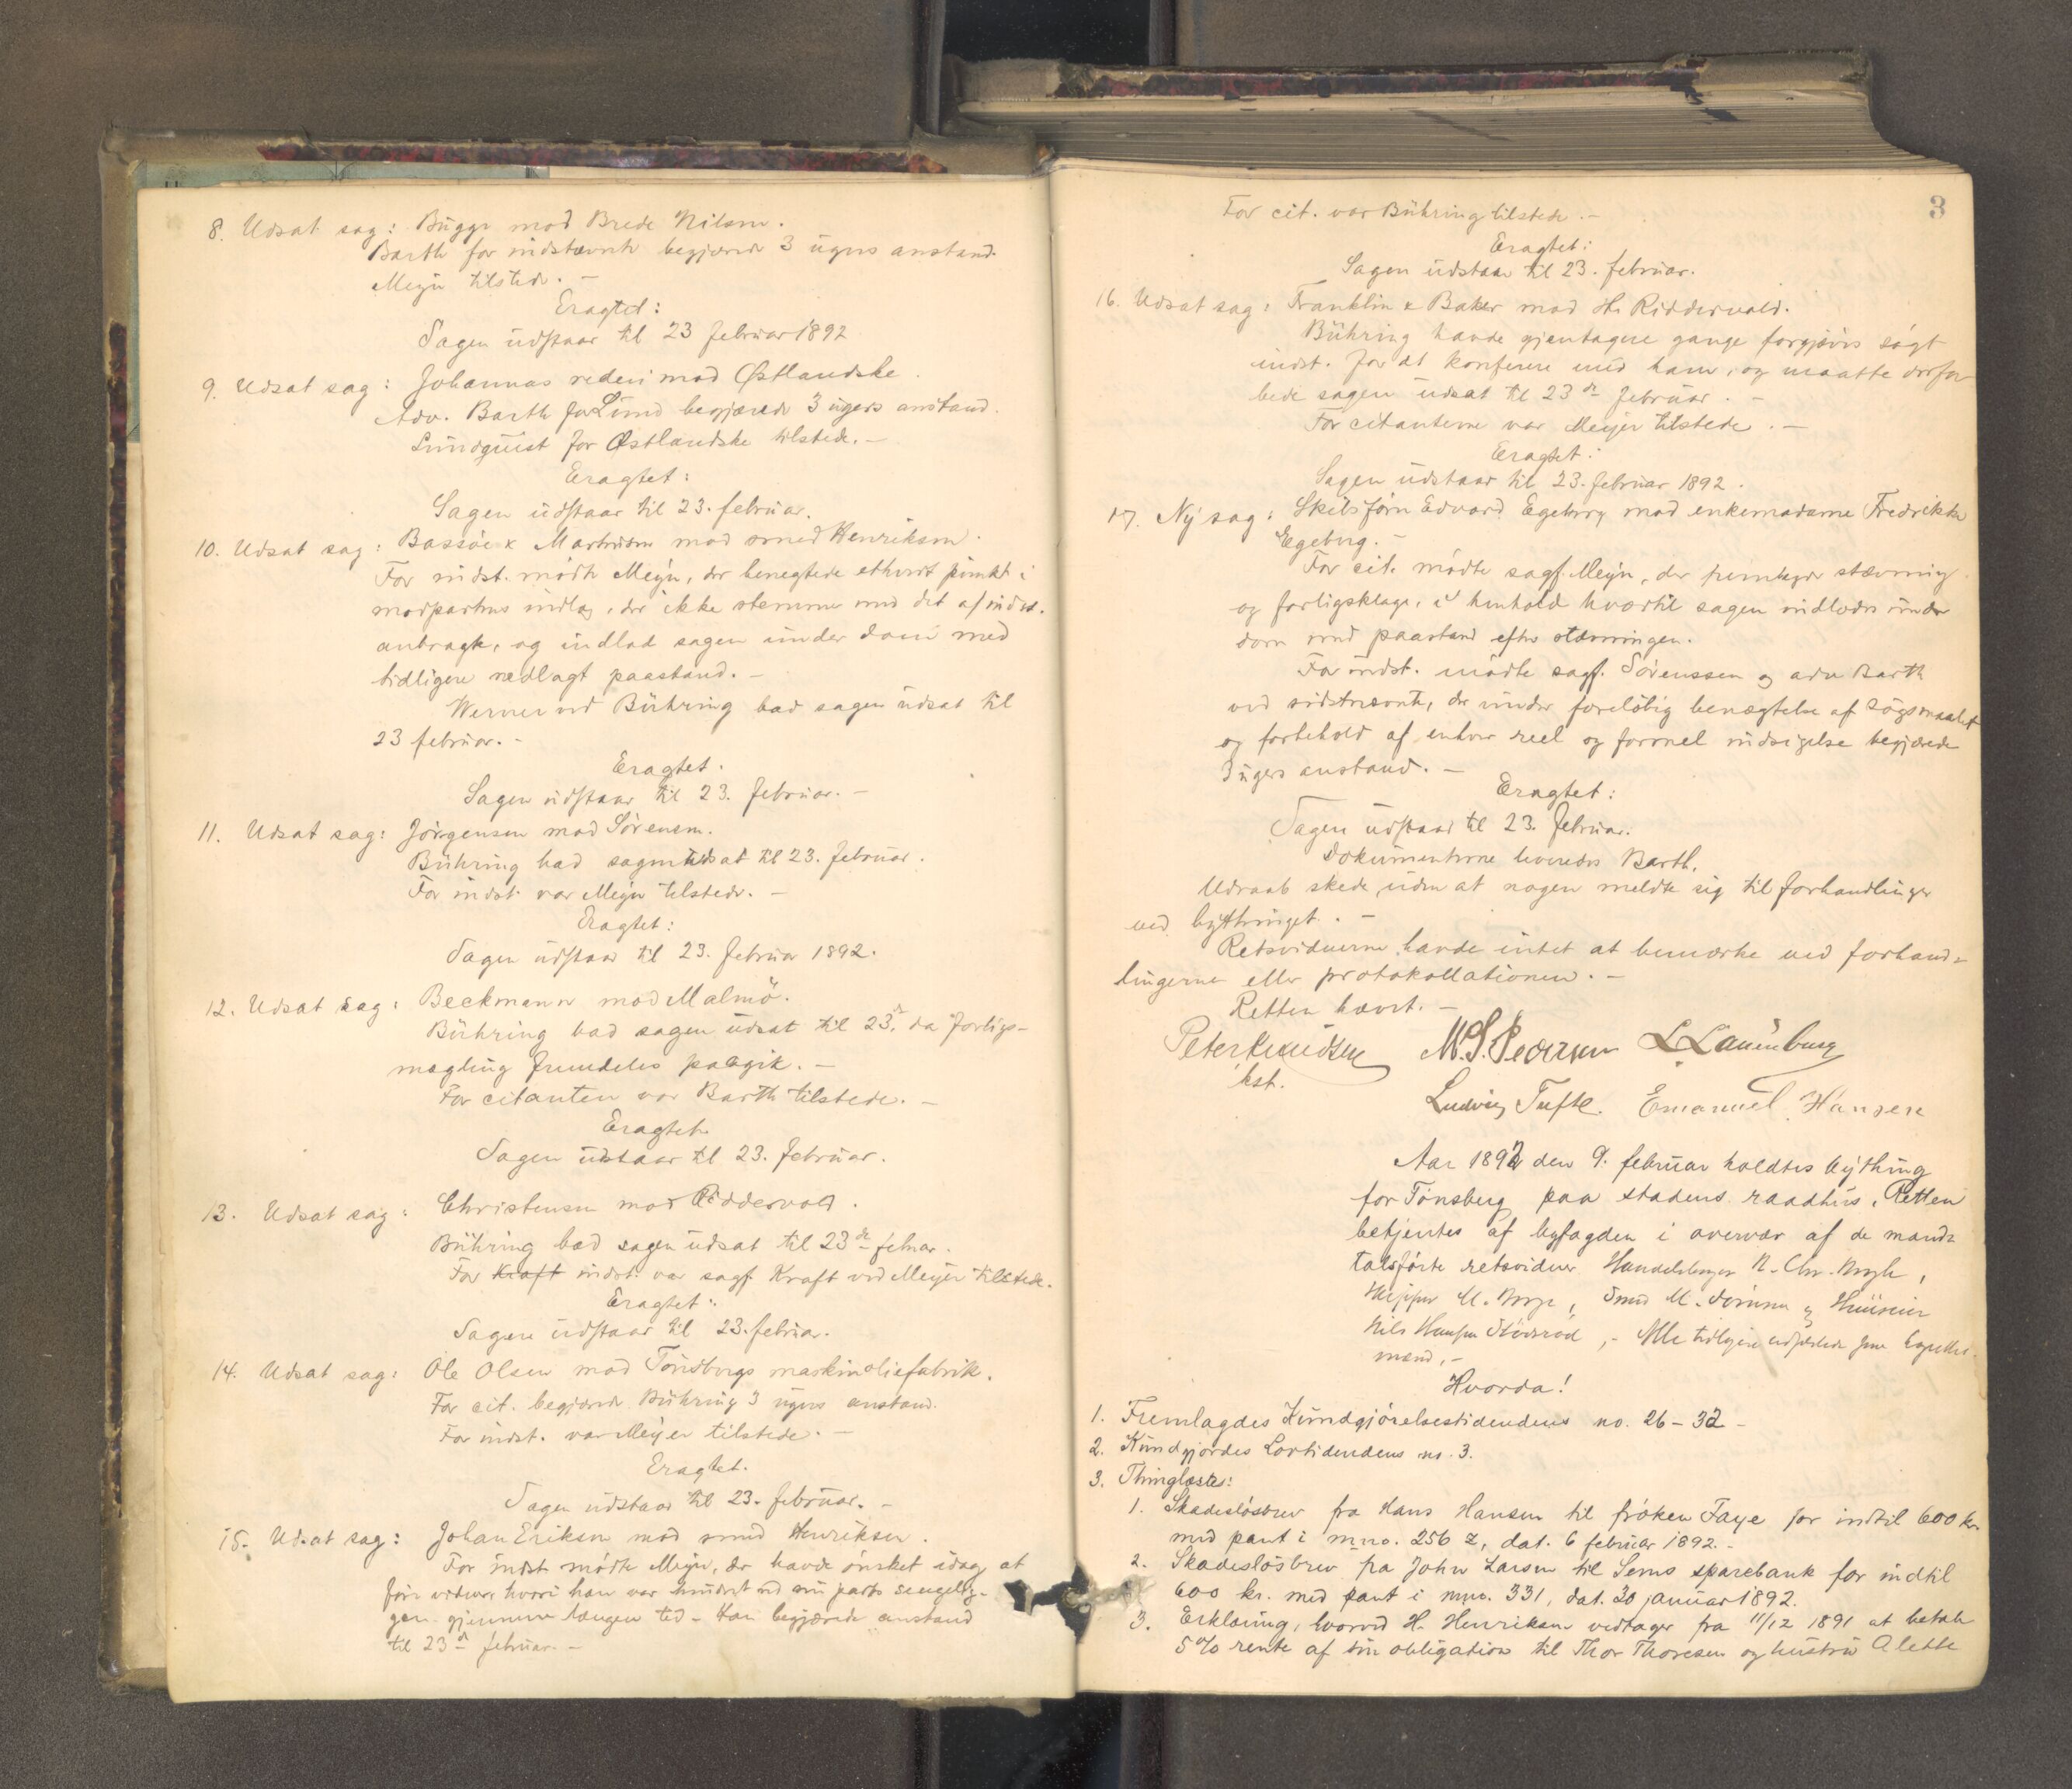 8. Udsat sag: Bugge mod Brede Nilsen.
Barth for indstævnte begjærede 3 ugers anstand.
Meyer tilstede. –
Eragtet:
Sagen udstaar til 23 februar 1892
9. Udsat sag: Johannas rederi mod Østlandske.
Adv. Barth for Lund begjærede 3 ugers anstand.
Lundquist for Østlandske tilstede. –
Eragtet:
Sagen udstaar til 23. februar.
10. Udsat sag: Bassøe & Martinsen mod smed Henriksen.
For indst. mødte Meyer, der benegtede ethvert punkt i
modpartens indlæg, der ikke stemmer med det af indst.
anbragte, og indlod sagen under dom med
tidligere nedlagt paastand. –
Werner ved Bühring bad sagen udsat til
23 februar. –
Eragtet.
Sagen udstaar til 23. februar. –
11. Udsat sag: Jörgensen mod Sörensen.
Bühring bad sagen udsat til 23. februar.
For indst. var Meyer tilstede. –
Eragtet:
Sagen udstaar til 23. februar 1892.
12. Udsat sag: Beckmann mod Malmö.
Bühring bad sagen udsat til 23. da forligs-
mægling fremdeles paagik. –
For citanten var Barth tilstede. –
Eragtet.
Sagen udstaar til 23. februar.
13. Udsat sag: Christensen mod Riddervold.
Bühring bad sagen udsat til 23de februar.
For Kraft indst. var sagf. Kraft ved Meyer tilstede.
Eragtet:
Sagen udstaar til 23. februar.
14. Udsat sag: Ole Olsen mod Tönsbergs maskinoliefabrik.
For cit. begjærede Bühring 3 ugers anstand.
For indst. var Meyer tilstede. –
Eragtet.
Sagen udstaar til 23. februar. –
15. Udsat sag: Johan Eriksen mod smed Henriksen.
For indst. mødte Meyer, der havde ønsket idag at
føre vidner, hvori han var hindret ved sin parts sengelig-
gen gjennem længere tid – Han begjærede anstand
til 23de februar. –
3
For cit. var Bühring tilstede. –
Eragtet:
Sagen udstaar til 23. februar.
16. Udsat sag: Franklin & Baker mod H. Riddervold.
Bühring havde gjentagne gange forgjæves søgt
indst. for at konferere med ham, og maatte derfor
bede sagen udsat til 23de februar. –
For citanterne var Meyer tilstede. –
Eragtet:
Sagen udstaar til 23. februar 1892.
17. Ny sag: Skibsförer Edvard Egeberg mod enkemadame Fredrikke
Egeberg. –
For cit. mødte sagf. Meyer, der fremlagde stævning
og forligsklage, i henhold hvortil sagen indlodes under
dom med paastand efter stævningen.
For indst. mødte sagf. Sörenssen og adv Barth
ved sidstnævnte, der under foreløbig benægtelse af søgsmaalet
og forbehold af enhver reel og formel indsigelse begjærede
3 ugers anstand. –
Eragtet:
Sagen udstaar til 23. februar.
Dokumenterne leveredes Barth.
Udraab skede, uden at nogen meldte sig til forhandlinger
ved bythinget. –
Retsvidnerne havde intet at bemærke ved forhand-
lingerne eller protokollationen. –
Retten hævet. –
Peter Knudsen M. S. Pedersen L Lauenburg
kst.
Ludvig Tufte. Emanuel Hansen
Aar 1892 den 9. februar holdtes bything
for Tönsberg paa stadens raadhus. Retten
betjentes af byfogden i overvær af de mand-
talsførte retsvidner Handelsborger N. Chr.
Skipper M. , Smed M. og Huseier
Nils Hansen . – Alle tidligere
mænd. –
Hvorda!
1. Fremlagdes Kundgjörelsestidendens no. 26 – 32 –
2. Kundgjordes Lovtidendens no. 3.
3. Thinglæstes:
1. Skadesløsbrev fra Hans Hansen til frøken Faye for indtil 600 kr.
med pant i mno. 256 z, dat. 6 februar 1892. –
2. Skadesløsbrev fra John Larsen til Sems sparebank for indtil
600 kr. med pant i mno. 331, dat. 30 januar 1892.
3. Erklæring, hvorved H. Henriksen vedtager fra 11/12 1891 at betale
5% rente af sin obligation til Thor Thoresen og hustru Alette